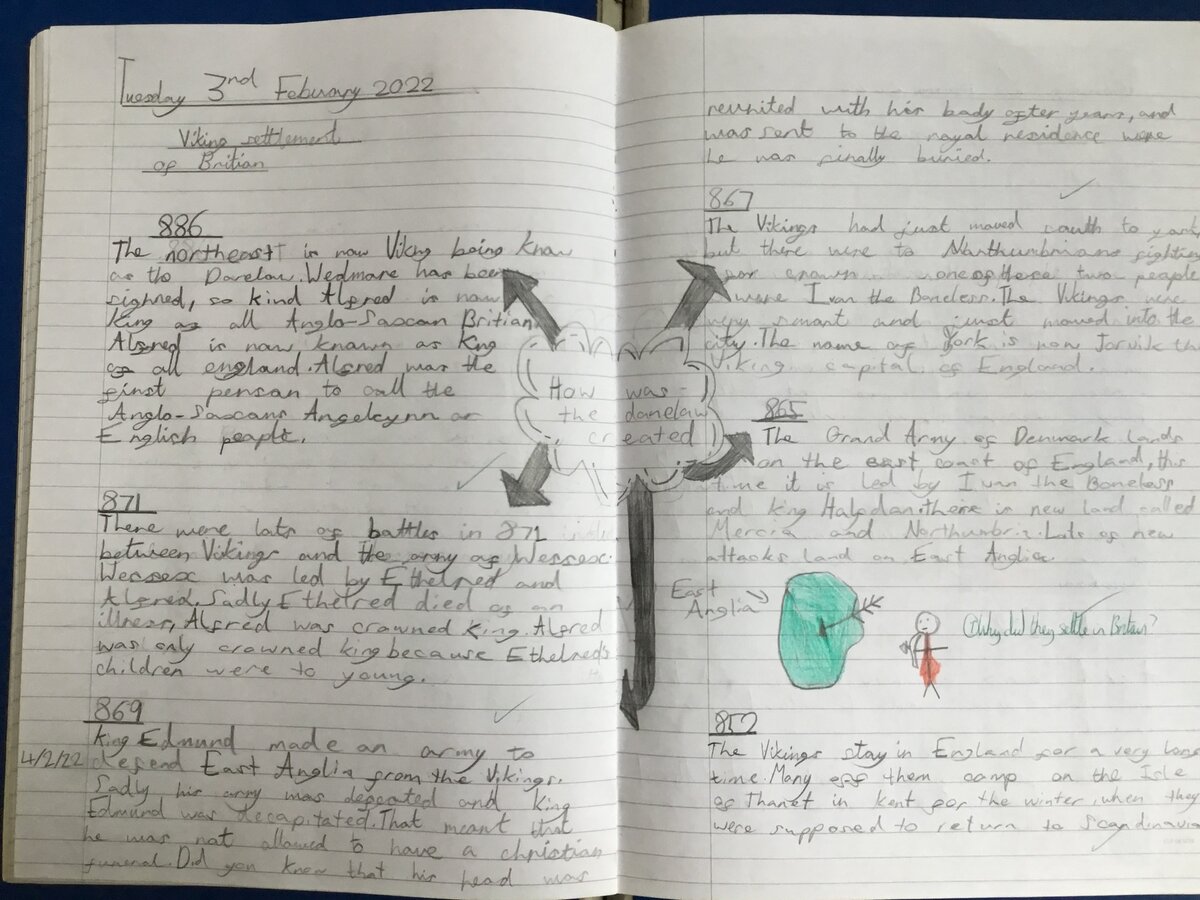 Tuesday 3nd Febuary 2022
Viking settlement
of Britian
886
The northeast is now Viking being know
as the Danelaw. Wedmore has been
signed, so kind Alfred is now
King of all Anglo-Saxcan Britian
Alfred is now known as King
of all england. Alfred was the
first person to call the
Anglo-Saxcans Angelcynn or
English people.
871
There were lots of battles in 871
between Vikings and the army of Wessex.
Wessex was led by Ethelred and
Alfred. Sadly Ethelred died of an
illness, Alfred was crowned king. Alfred
was only crowned king because Ethelred's
children were to young.
869
King Edmund made an army to
4/2/22 defend East Anglia from the Vikings.
Sadly his army was defeated and King
Edmund was decapitated. That meant that
he was not allowed to have a christian
funeral. Did you know that his head was
How was
the danelaw
created
reunited with his body after years, and
was sent to the royal residence were
he was finally buried.
867
The Vikings had just moved south to york,
but there were to Northumbrians fighting
for crown one of these two people
were Ivan the Boneless. The Vikings were
very smart and just moved into the
city. The name of York is now Jorvik the
Viking capital of England.
865
The Grand Army of Denmark lands
on the east coast of England, this
time it is led by Ivan the Boneless
and king Halfdan. there is new land called
Mercia and Northumbria. Lots of new
attacks land on East Anglia.
East
Anglia
Why did they settle in Britain?
852
The Vikings stay in England for a very long
time. Many off them camp on the Isle
of Thanet in kent for the winter, when they
were supposed to return to Scandinavia